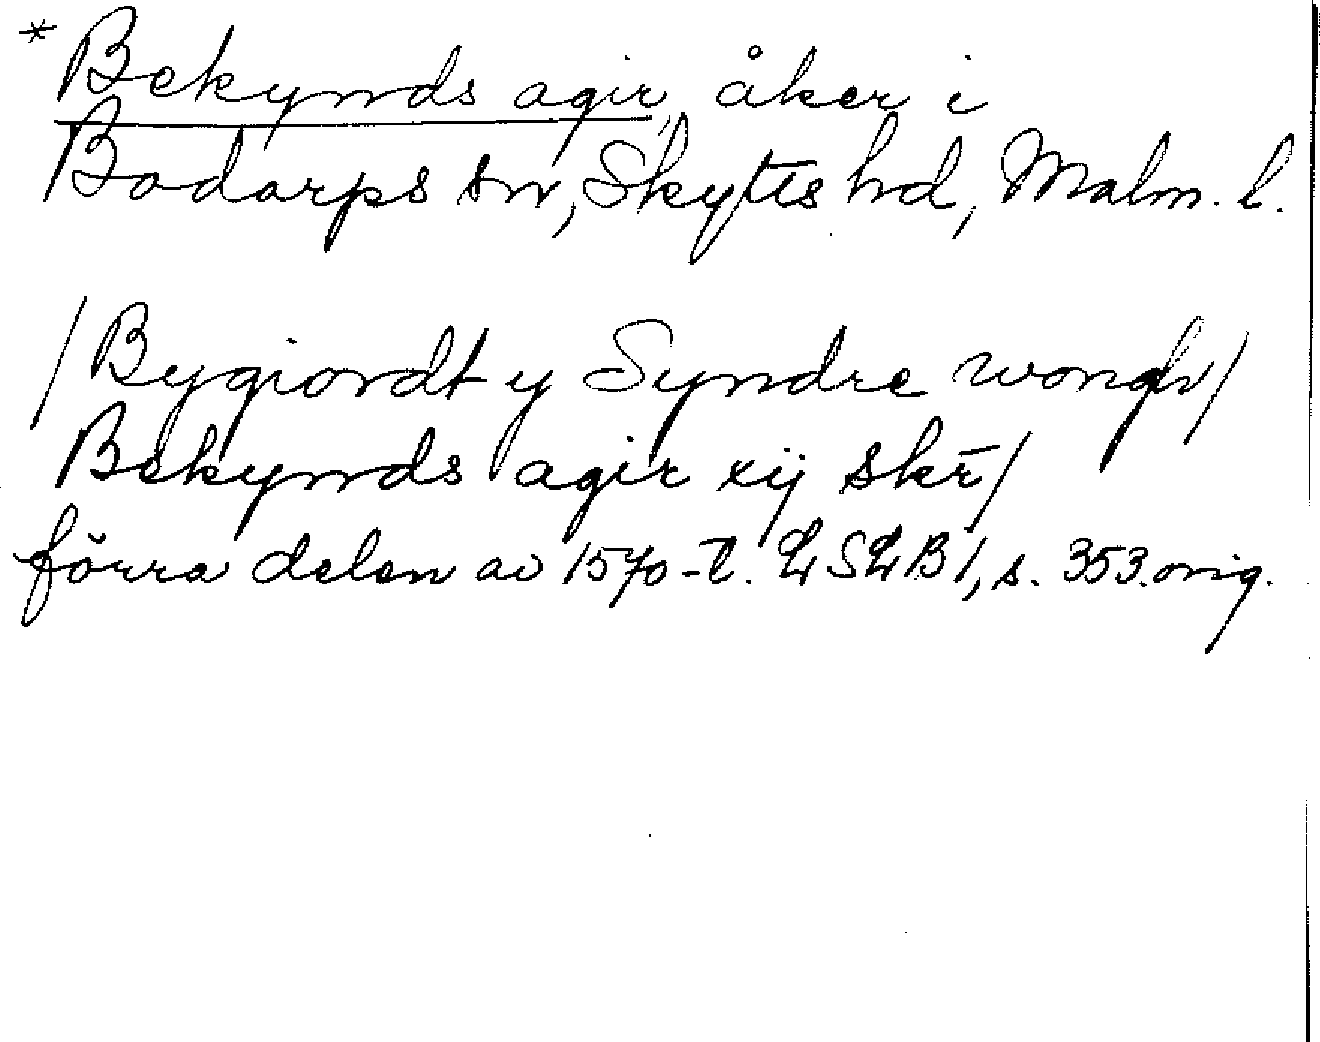 * Bekynds agir, åker i
Bodarps sn, Skytts hd, Malm. l.
/Bygiordt y Syndre wongh/
Bekynds agir xij skr̄/
förra delen av 1570-t. LSLB 1, s. 353. orig.